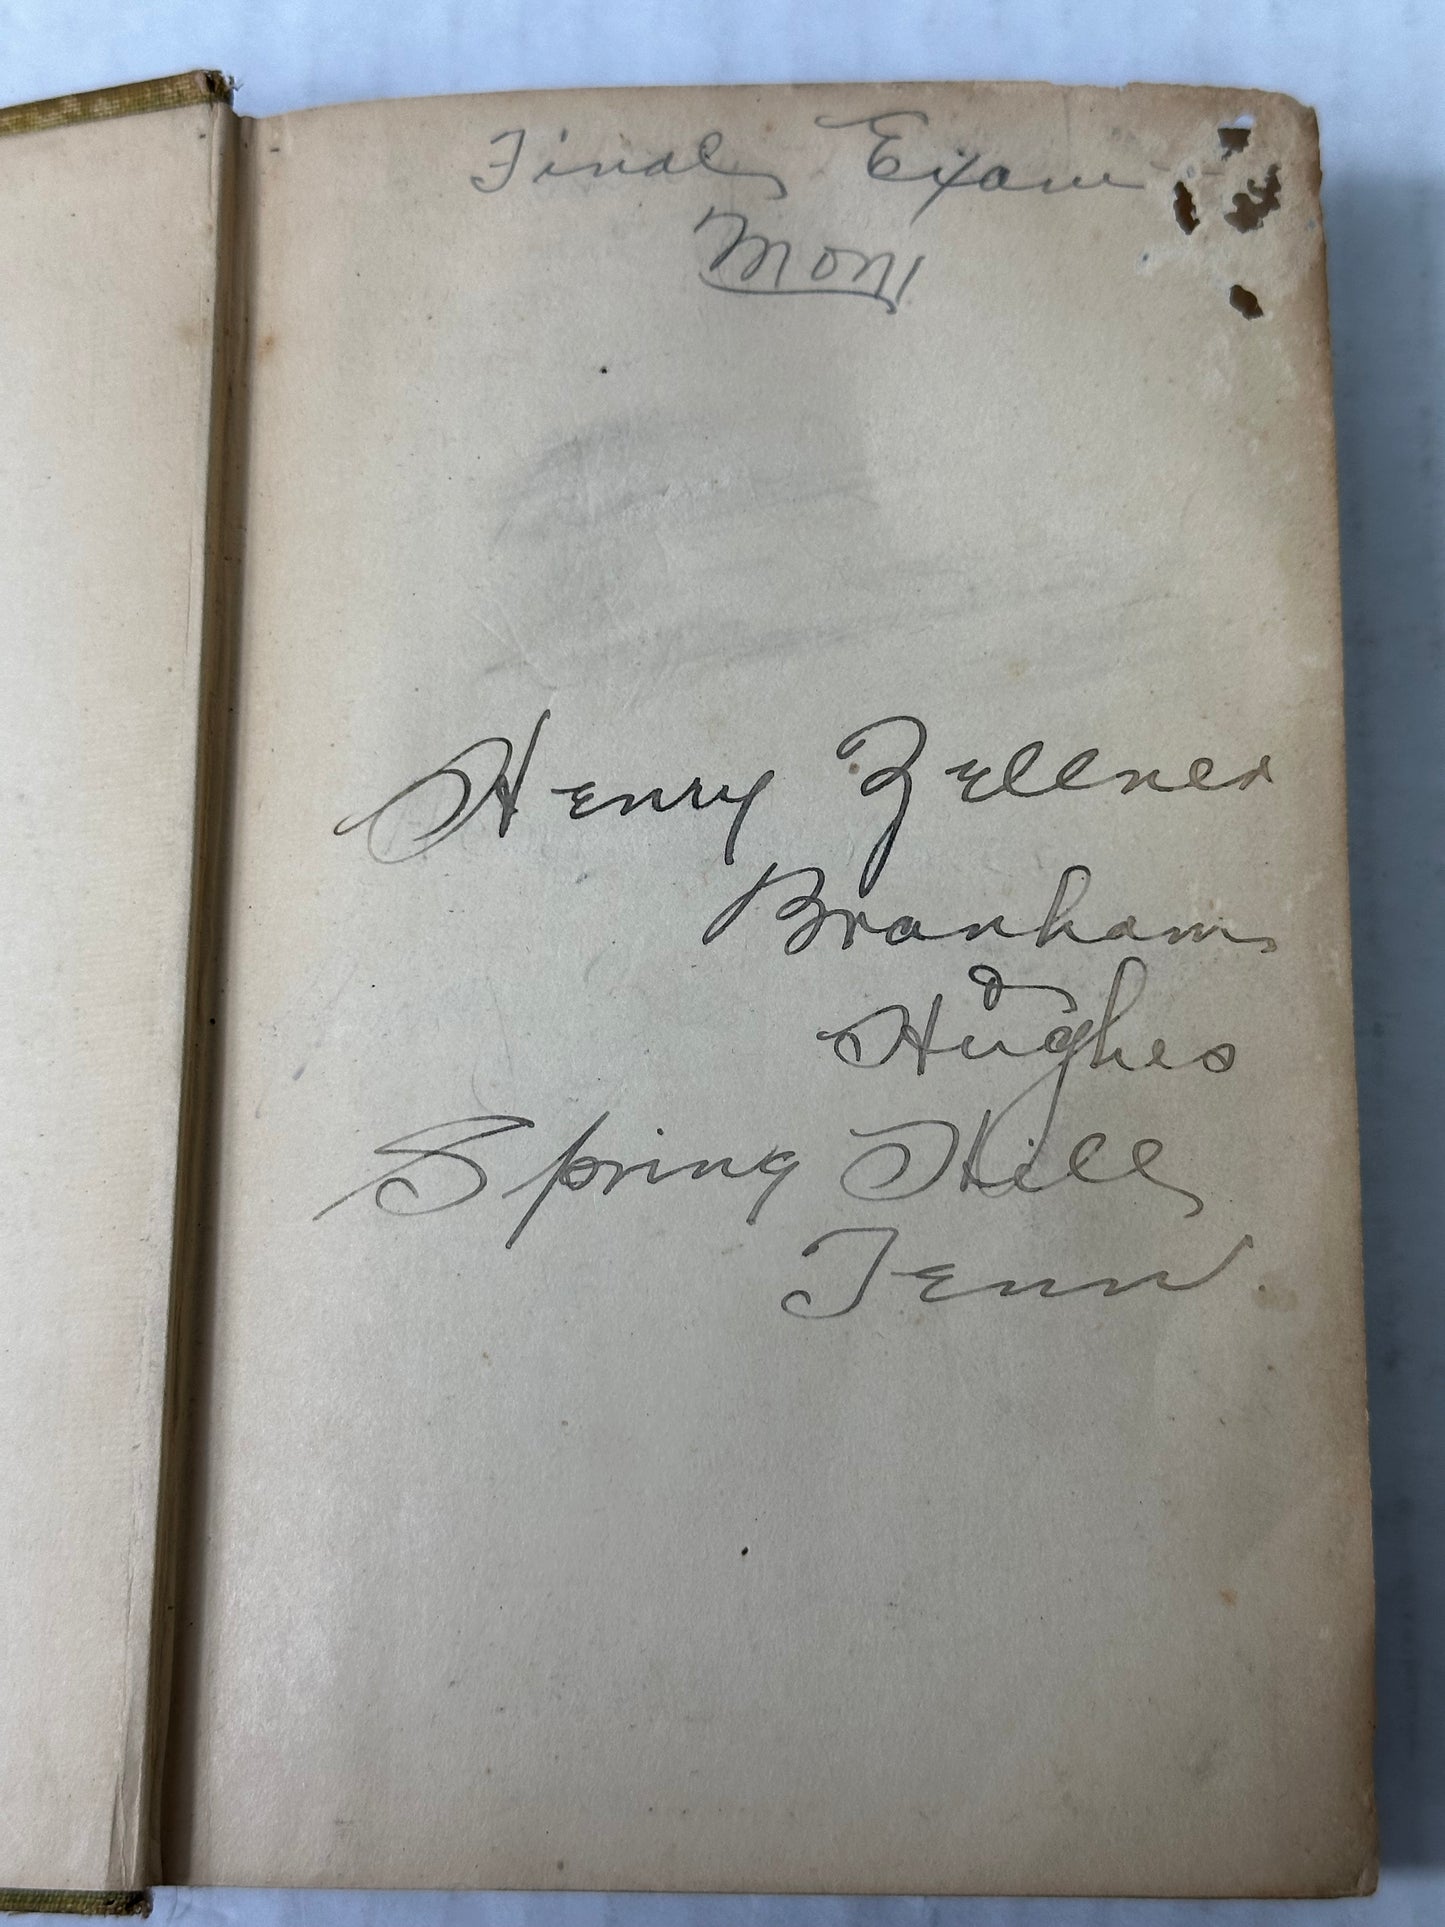 Final Exam
Mon
Henry Zellner
Branham
&
Hughes
Spring Hill
Tenn